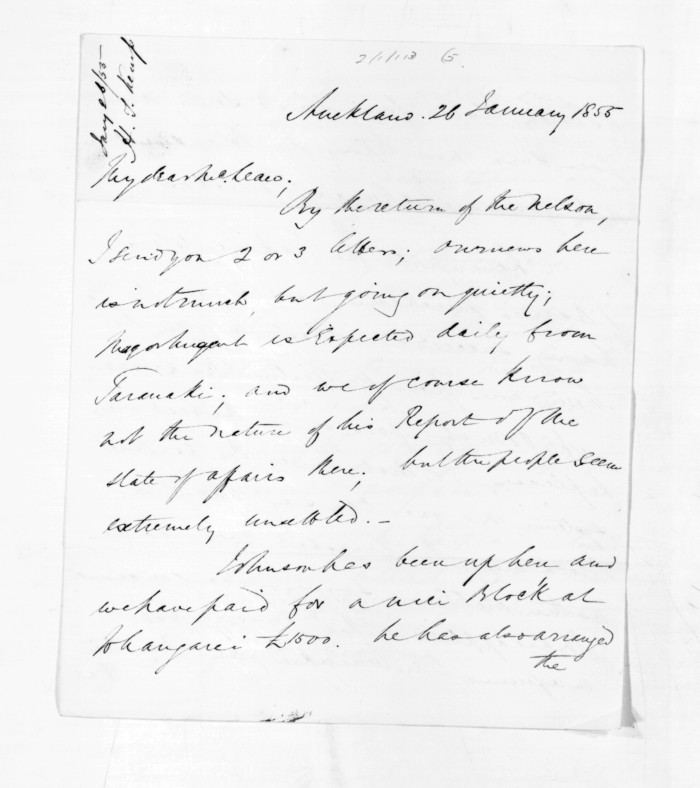 Jany 26/55
H. T. Kemp
Auckland. 26 January 1855
My dear McLean;
By the return of the Nelson,
I send you 2 or 3 letters; our news here
is not much, but going on quietly;
Major Nugent is Expected daily from
Taranaki; and we of course know
not the nature of his Report of the
state of affairs there; but the people seem
extremely unsettled. -
Johnson has been up here and
we have paid for a nice Block at
Whangarei £1500. he has also arranged
the